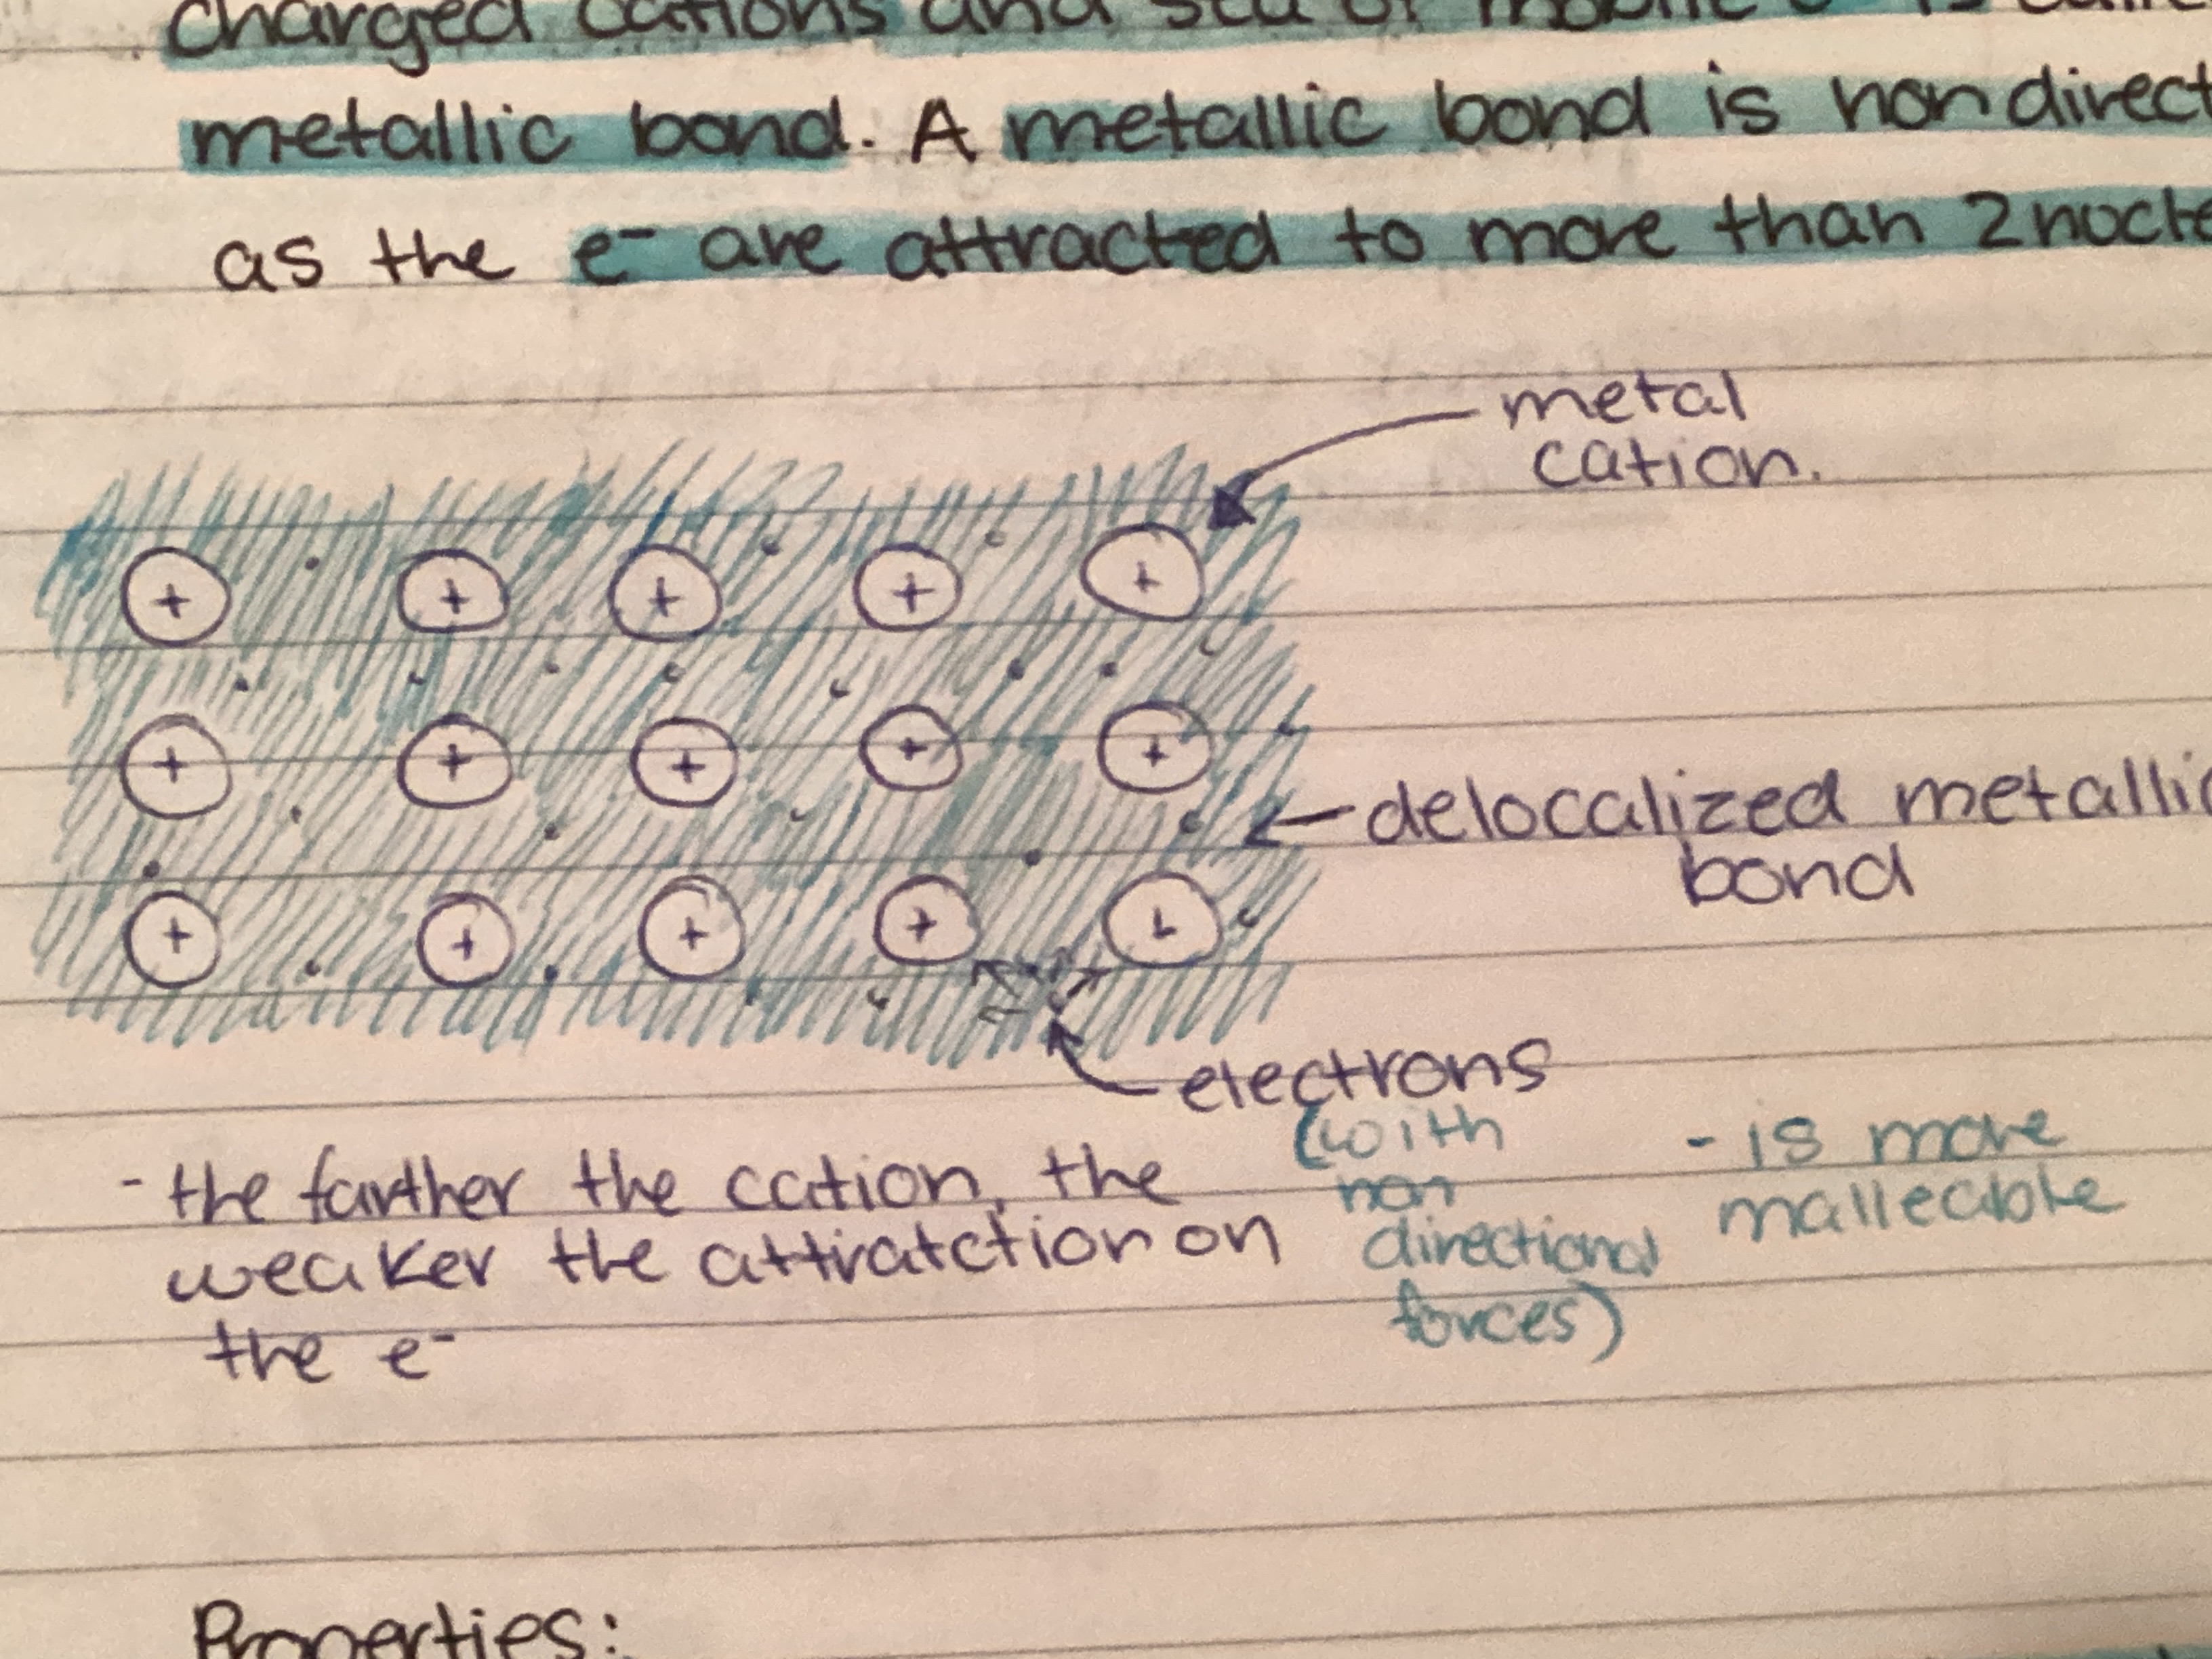 charged cations and sea of mobile e⁻ is
metallic bond. A metallic bond is nondirect
as the e⁻ are attracted to more than 2 nucle
metal
cation.
+ + + + +
+ + + + +
+ + + + +
delocalized metallic
bond
electrons
(with
non
directional
forces)
- is more
malleable
- the farther the cation, the
weaker the attratction on
the e⁻
Properties: